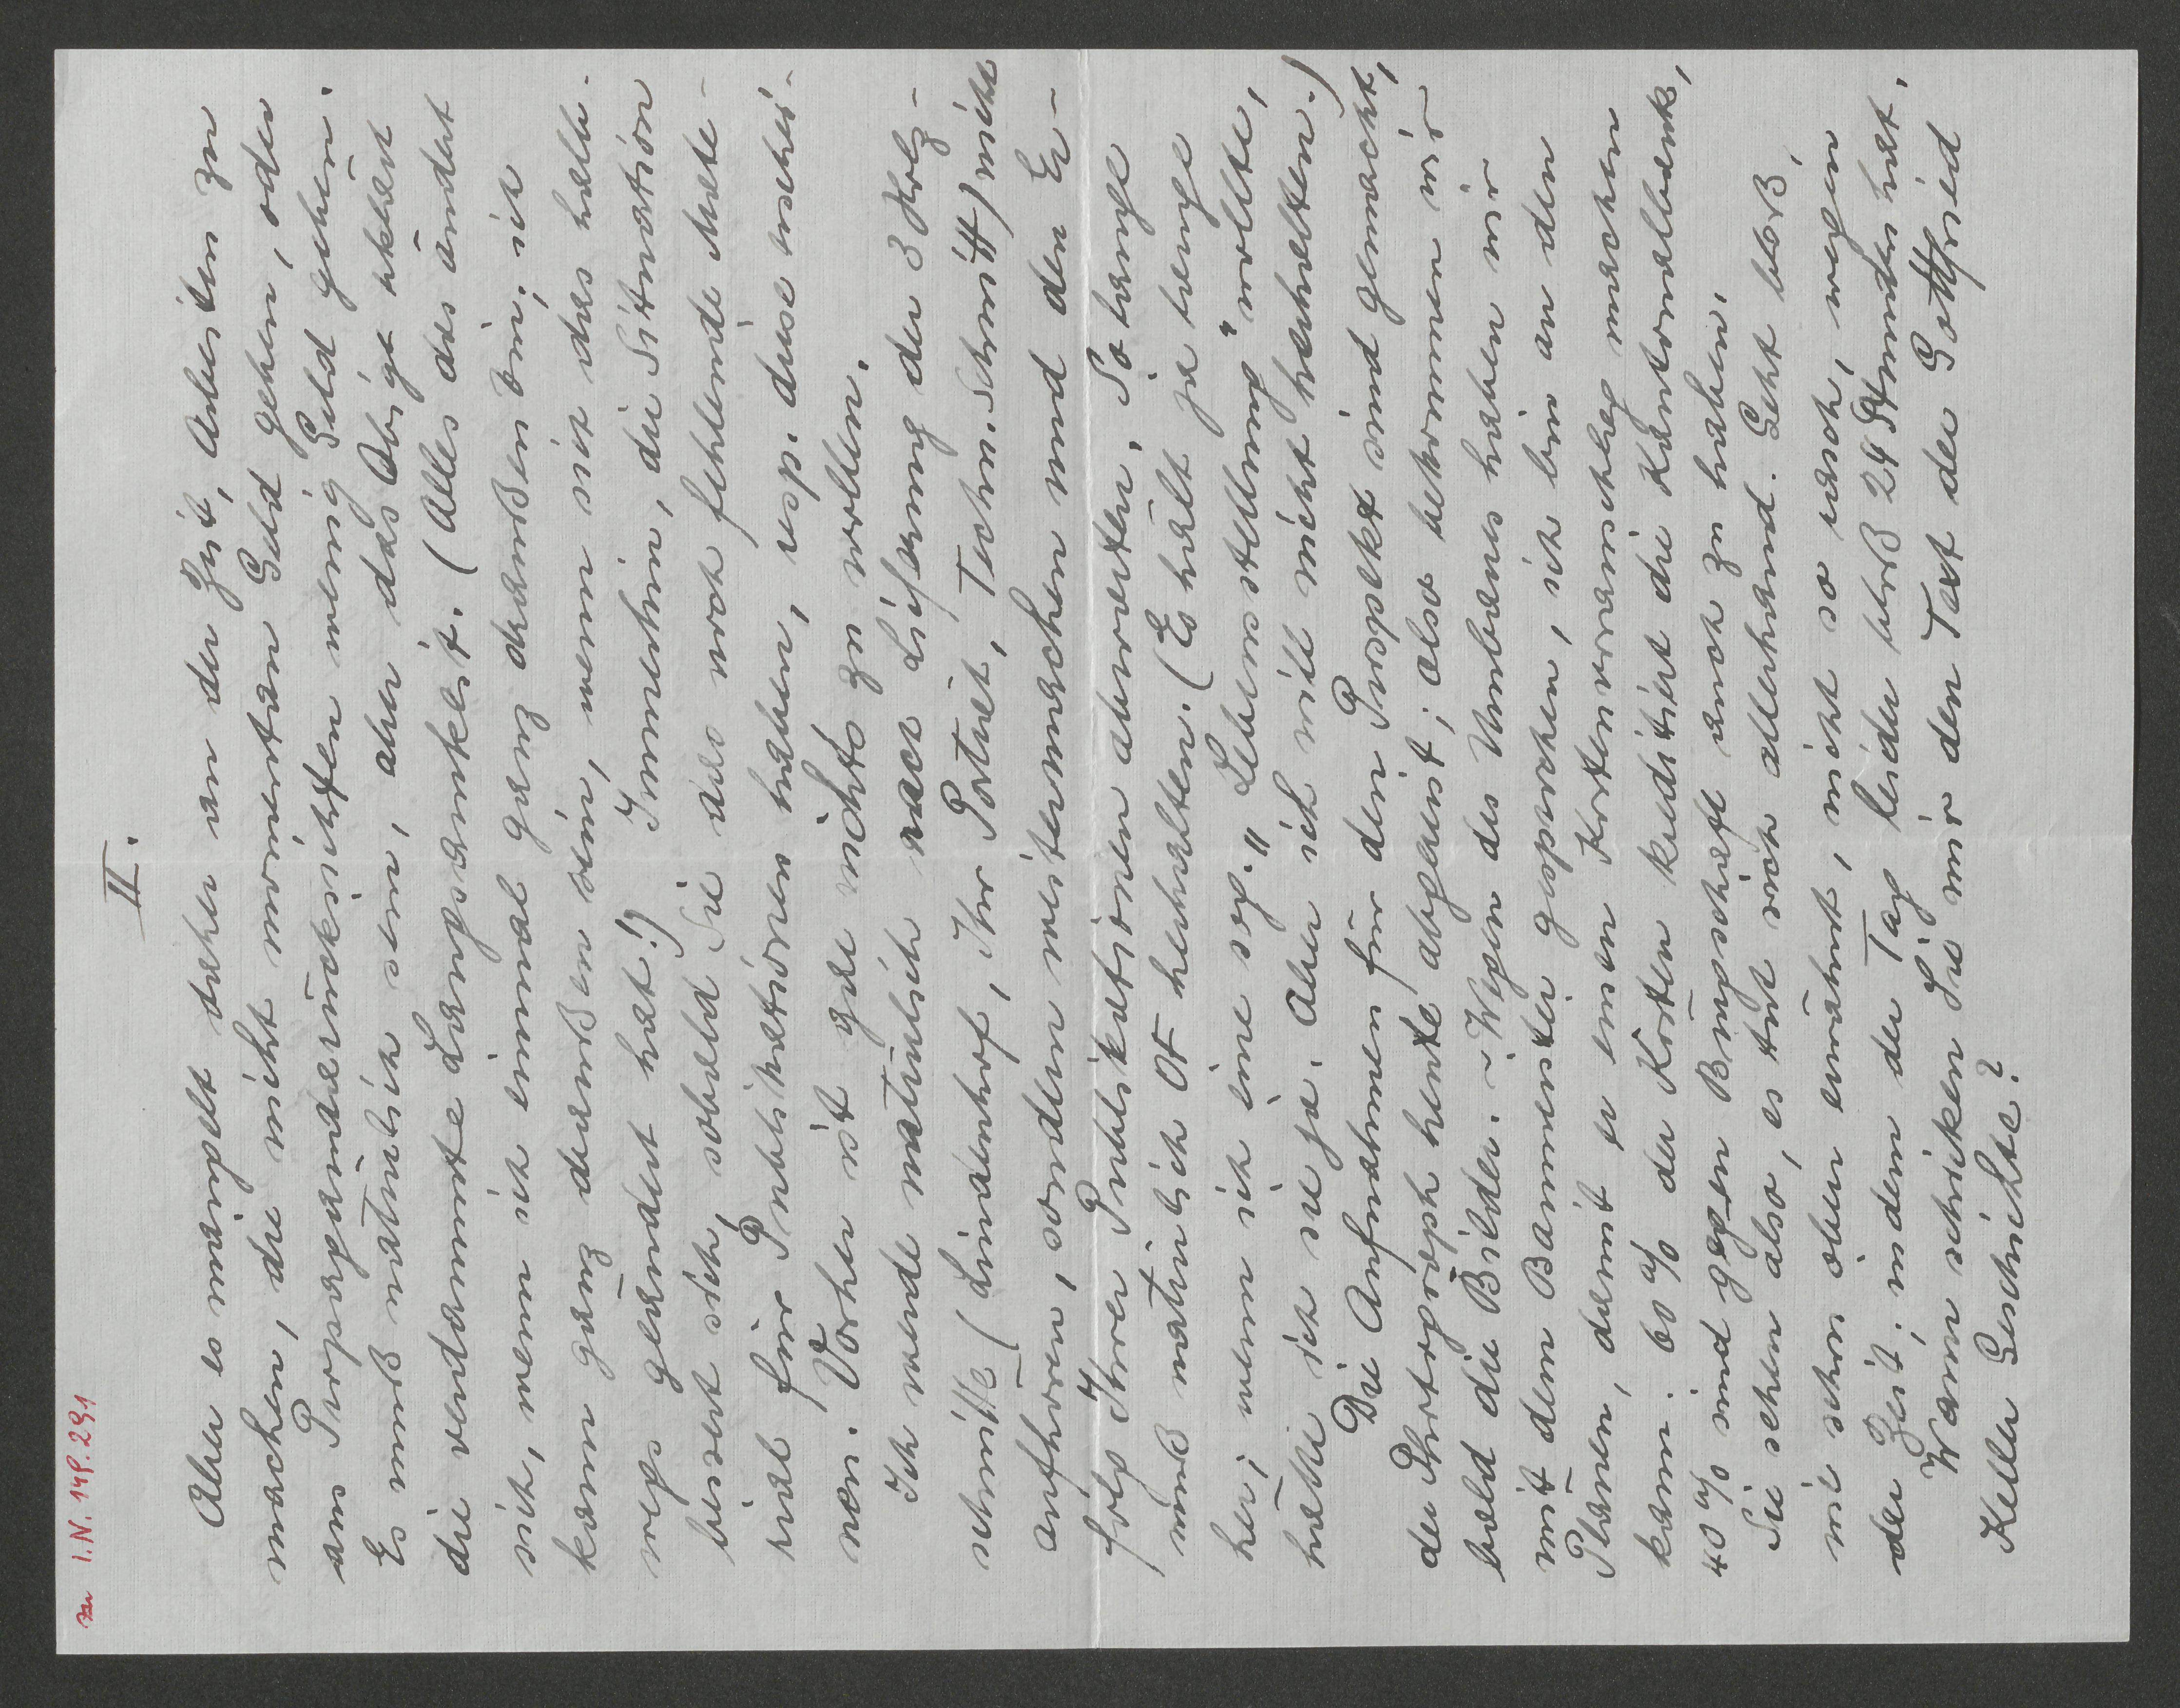 zu I.N. 149.291
II.
Aber es mangelt daher an der Zeit, Arbeiten zu
machen, die nicht momentan Geld geben, oder
aus Propagandarücksichten wenig Geld geben.
Es muß natürlich sein, aber das Obige erklärt
die verdammte Langsamkeit. (Alles das ändert
sich, wenn ich einmal ganz draußen bin; ich
kann ganz draußen sein, wenn sich das halb-
wegs geändert hat!) Immerhin, die Situation
bessert sich, sobald Sie das noch fehlende Mate-
rial für Publikationen haben, resp. diese erschei-
nen. Vorher ist gar nichts zu wollen.
Ich werde natürlich nach Lieferung der 3 Holz-
schnitte (Lindenhof, Ihr Porträt, Techn. Schnitt) nicht
aufhören, sondern weitermachen und den Er-
folg Ihrer Publikationen abwarten. So lange
muß natürlich OF herhalten. (Es hält ja lange
her; wenn ich eine sog. „Lebensstellung" wollte,
hätte ich sie ja. Aber ich will nicht herhalten.)
Die Aufnahmen für den Prospekt sind gemacht,
der Photograph heute abgereist; also bekommen wir
bald die Bilder. – Wegen des Umbaus haben wir
mit dem Baumeister gesprochen, ich bin an den
Plänen, damit er einen Kostenvoranschlag machen
kann. 60% der Kosten kreditiert die Kantonalbank,
40% sind gegen Bürgschaft auch zu haben.
Sie sehen also, es tut sich allerhand. Geht bloß,
wie schon oben erwähnt, nicht so rasch, wegen
der Zeit; indem der Tag leider bloß 24 Stunden hat.
Wann schicken Sie mir den Text der Gottfried
Keller Geschichte?